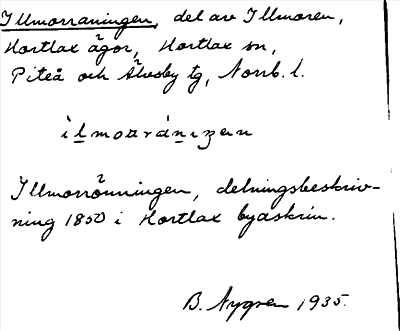 Illmorraningen, del av Illmoren,
Hortlax ägor, Hortlax sn,
Piteå och Älvsby tg, Norrb. l.
Illmorrönningen, delningsbeskriv-
ning 1850 i Hortlax byaskrin.
B. Nygren 1935.